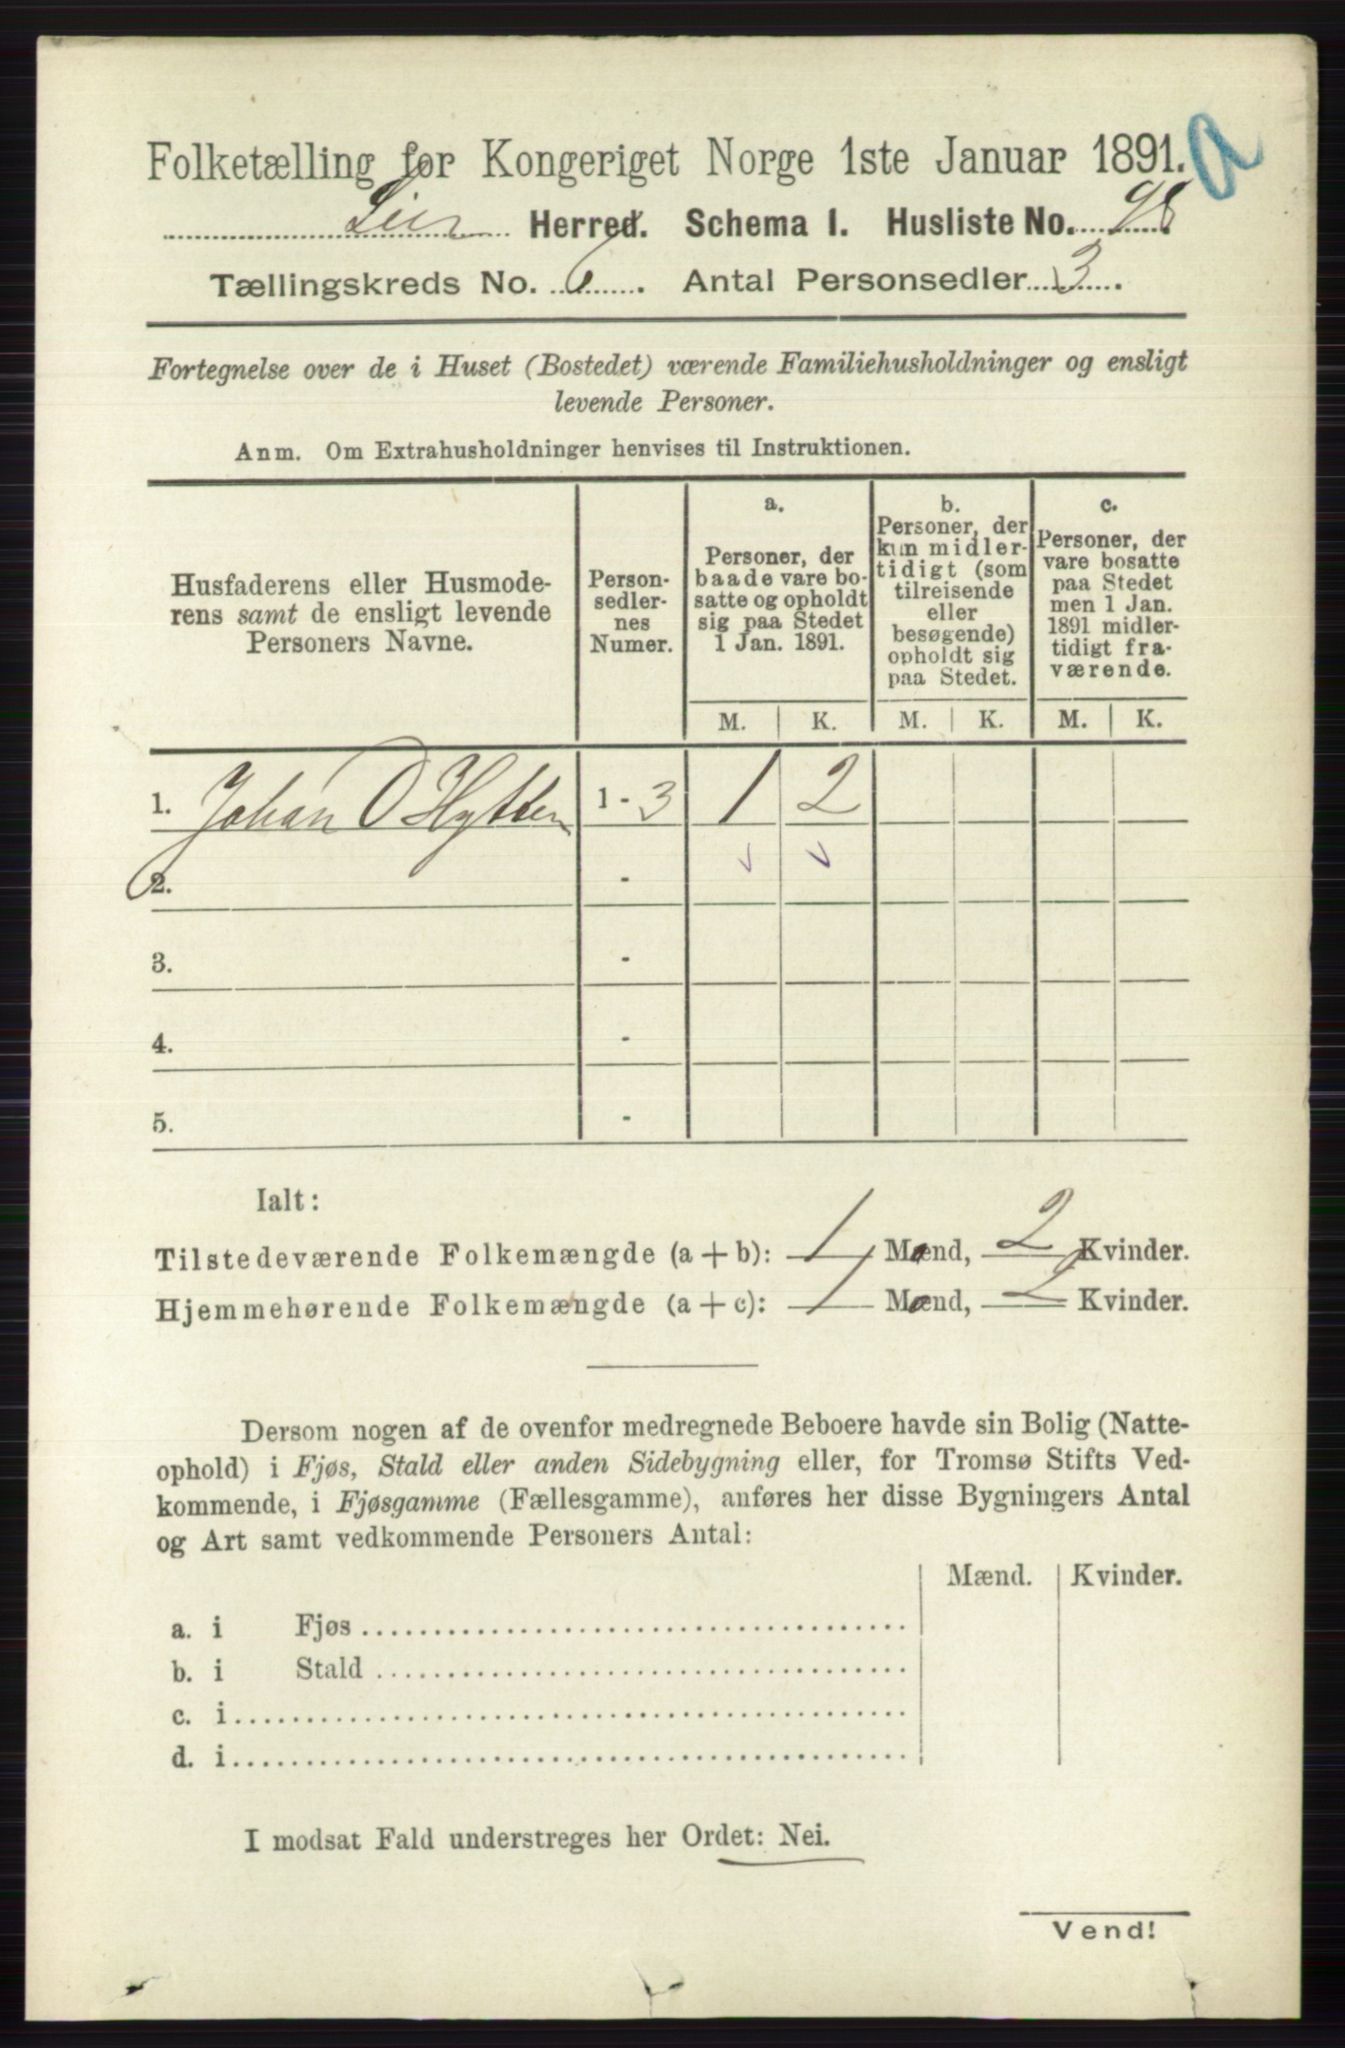 Folketælling for Kongeriget Norge 1ste Januar 1891. a
Lier Herred. Schema I. Husliste No. 98
Tællingskreds No. 6. Antal Personsedler 3.
Fortegnelse over de i Huset (Bostedet) værende Familiehusholdninger og ensligt
levende Personer.
Anm. Om Extrahusholdninger henvises til Instruktionen.
Husfaderens eller Husmode-
rens samt de ensligt levende
Personers Navne.
Person-
sedler-
nes
Numer.
a.
Personer, der
baade vare bo-
satte og opholdt
sig paa Stedet
1 Jan. 1891.
b.
Personer, der
kun midler-
tidigt (som
tilreisende
eller
besøgende)
opholdt sig
paa Stedet.
c.
Personer, der
vare bosatte
paa Stedet
men 1 Jan.
1891 midler-
tidigt fra-
værende.
M. K. M. K. M. K.
1. Johan O Hytten 1 - 3 1 2
2. -
3. -
4. -
5. -
Ialt:
Tilstedeværende Folkemængde (a + b): 1 Mænd, 2 Kvinder.
Hjemmehørende Folkemængde (a + c): 1 Mænd, 2 Kvinder.
Dersom nogen af de ovenfor medregnede Beboere havde sin Bolig (Natte-
ophold) i Fjøs, Stald eller anden Sidebygning eller, for Tromsø Stifts Ved-
kommende, i Fjøsgamme (Fællesgamme), anføres her disse Bygningers Antal
og Art samt vedkommende Personers Antal:
Mænd. Kvinder.
a. i Fjøs
b. i Stald
c. i
d. i
I modsat Fald understreges her Ordet: Nei.
Vend!